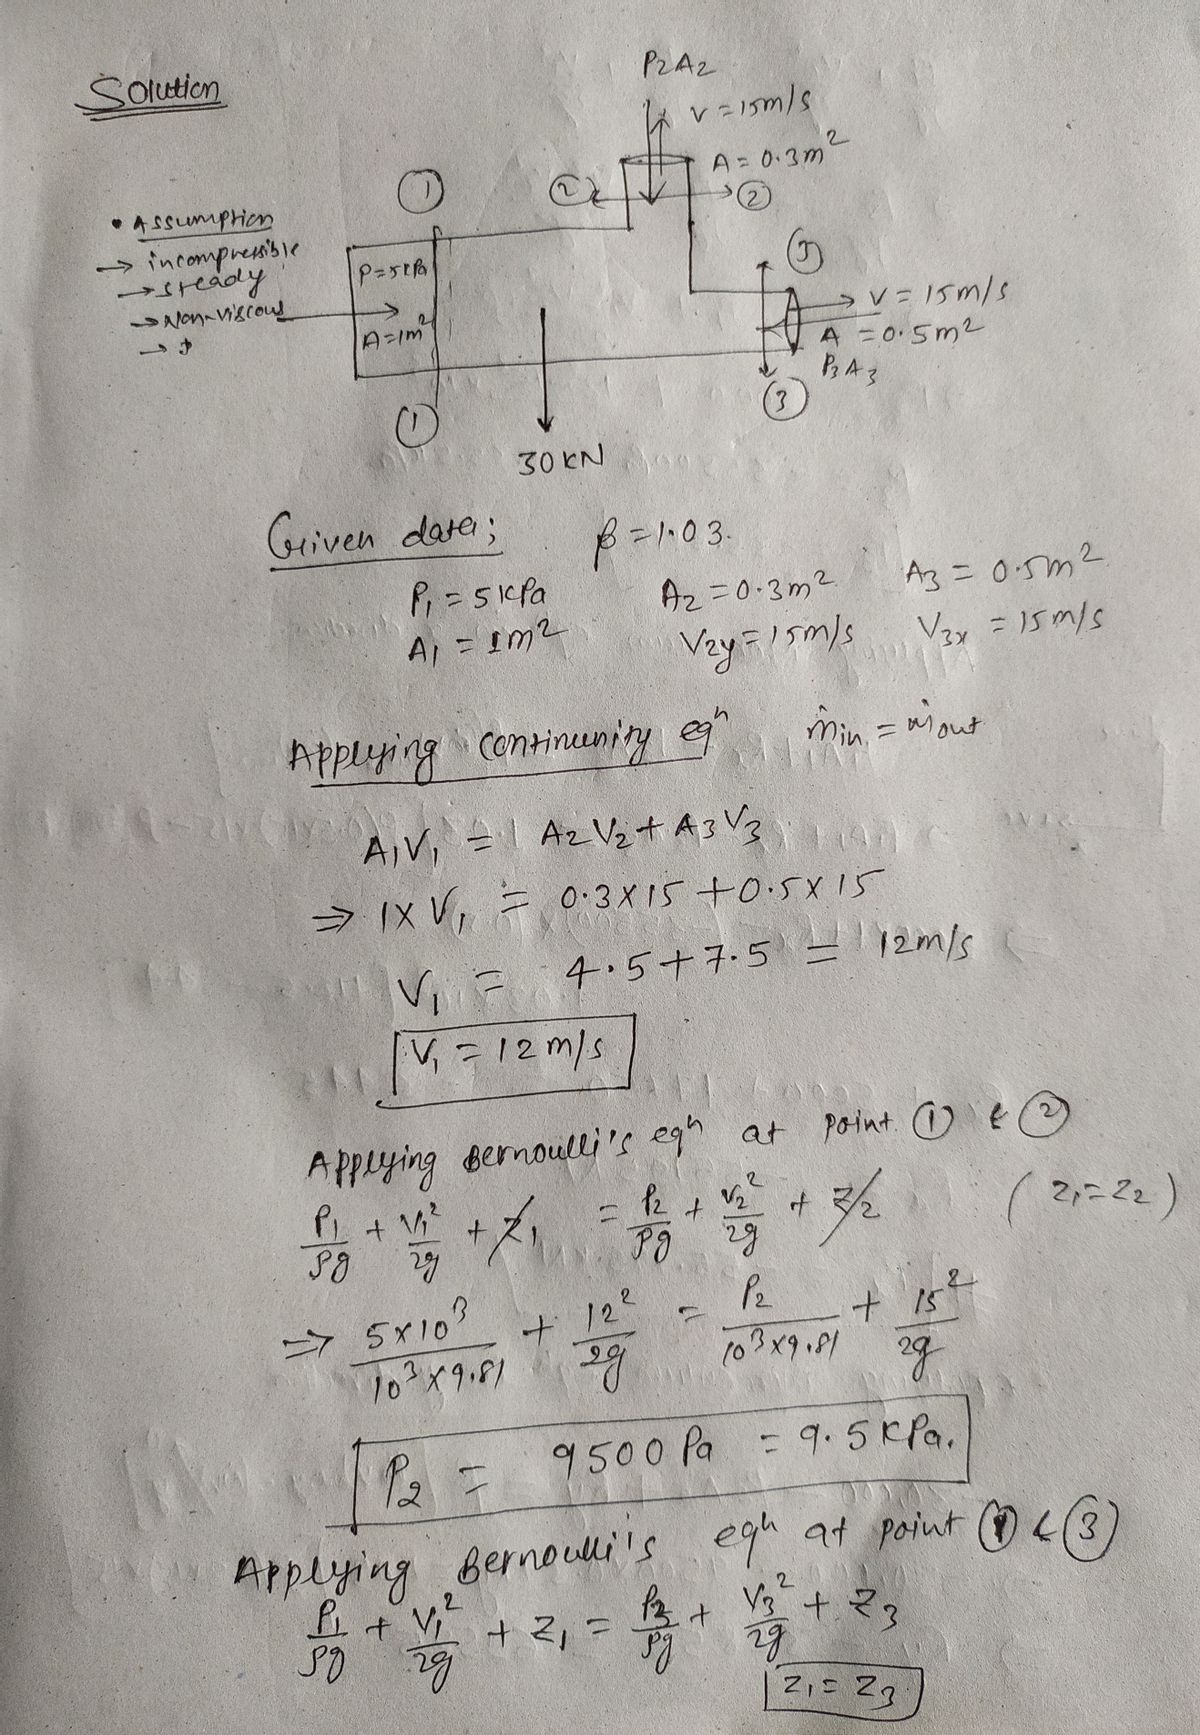 Solution
P2A2
V = 15m/s
A = 0.3m²
① ② ②
• Assumption
→ incompressible
→ steady
→ Non-viscous
→
P=5KPa
A=1m²
③
V = 15m/s
A = 0.5m²
P3A3
① ③
30KN
Given data; β = 1.03.
P₁ = 5KPa A₂ = 0.3m² A₃ = 0.5m²
A₁ = 1m² V₂y = 15m/s V₃x = 15m/s
Applying continuenity eqⁿ ṁin = ṁout
A₁V₁ = A₂V₂ + A₃V₃
⇒ 1×V₁ = 0.3×15 + 0.5×15
V₁ = 4.5+7.5 = 12m/s
V₁ = 12m/s
Applying Bernoulli's eqⁿ at point ① & ②
P₁/ρg + V₁²/2g + Z₁ = P₂/ρg + V₂²/2g + Z₂ (Z₁=Z₂)
⇒ 5×10³/10³×9.81 + 12²/2g = P₂/10³×9.81 + 15²/2g
P₂ = 9500Pa = 9.5KPa.
Applying Bernoulli's eqⁿ at point ① & ③
P₁/ρg + V₁²/2g + Z₁ = P₃/ρg + V₃²/2g + Z₃
Z₁ = Z₃